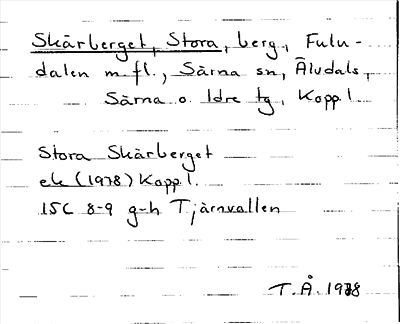 Skärberget, Stora, berg, Fulu-
dalen m.fl., Särna sn, Älvdals,
Särna o. Idre tg, Kopp. l.
Stora Skärberget
ek (1978) Kopp l.
15C 8-9 g-h Tjärnvallen
T.Å. 1978